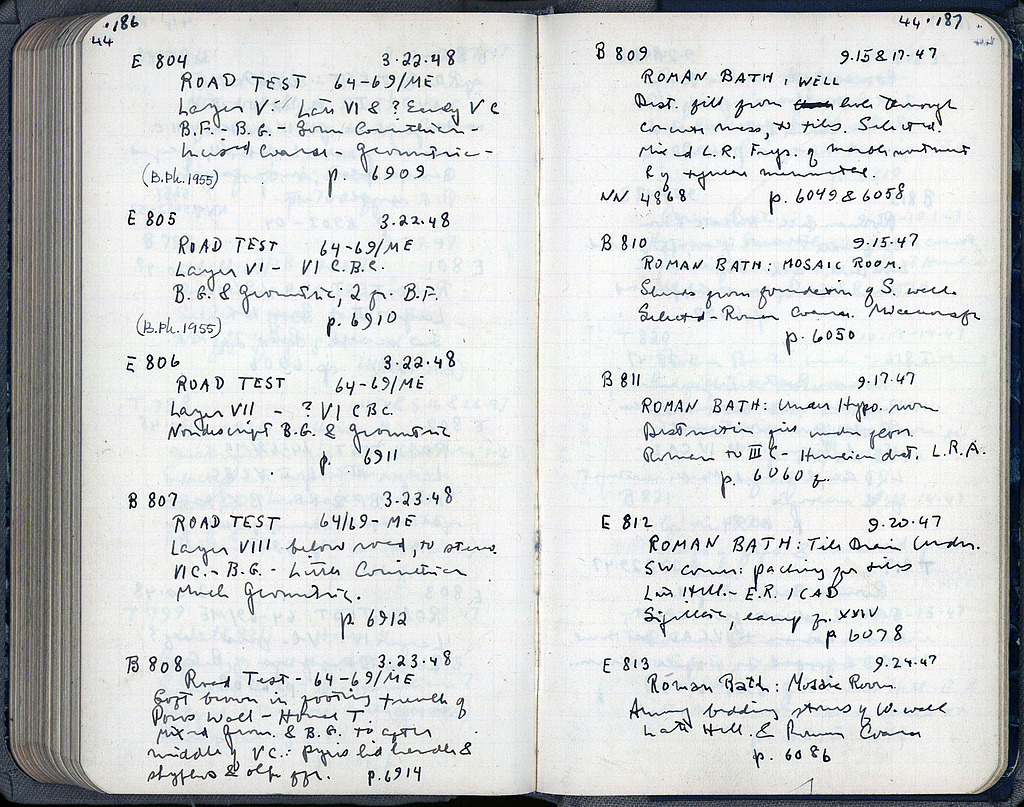 ·186
44
E 804 3·22·48
ROAD TEST 64-69/ME
Layer V - Late VI & ? Early V C
B.F. - B.G. - Some Corinthian -
Incised Coarse - Geometric -
(B.Ph. 1955) p. 6909
E 805 3·22·48
ROAD TEST 64-69/ME
Layer VI - VI C.B.C.
B.G. & Geometric, 2 fr. B.F.
(B.Ph. 1955) p. 6910
E 806 3·22·48
ROAD TEST 64-69/ME
Layer VII - ? VI C BC.
Nondescript B.G. & Geometric
p. 6911
B 807 3·23·48
ROAD TEST 64/69-ME
Layer VIII below road, to stereo
VI C. - B.G. - Little Corinthian
Much Geometric.
p 6912
B 808 3·23·48
Road Test - 64-69/ME
Soft brown in footing trench of
Poros Wall - House T.
Mixed from & B.G. to after
middle of V C.: pyxis lid handle &
skyphos & olpe ffr. p. 6914
44·187
B 809 9·15&17·47
ROMAN BATH, WELL
Dist. fill from hole through
concrete mass, to tiles. Selected.
Mixed L.R. Frgs. of marble
NN 4868 p. 6049 & 6058
B 810 9·15·47
ROMAN BATH: MOSAIC ROOM.
Sherds from foundation of S. wall
Selected - Roman Coarse.
p. 6050
B 811 9·17·47
ROMAN BATH: Under Hypo. room
Destruction fill under floor.
Roman to III C - Herulian dest. L.R.A.
p. 6060 f.
E 812 9·20·47
ROMAN BATH: Tile Drain Under.
SW corner: packing for tiles
Late Hell. - E.R. I C AD
Sigillata, stamp fr. XXIV
p 6078
E 813 9·24·47
Roman Bath: Mosaic Room
Among bedding stones of W. wall
Late Hell. & Roman Coarse
p. 6086